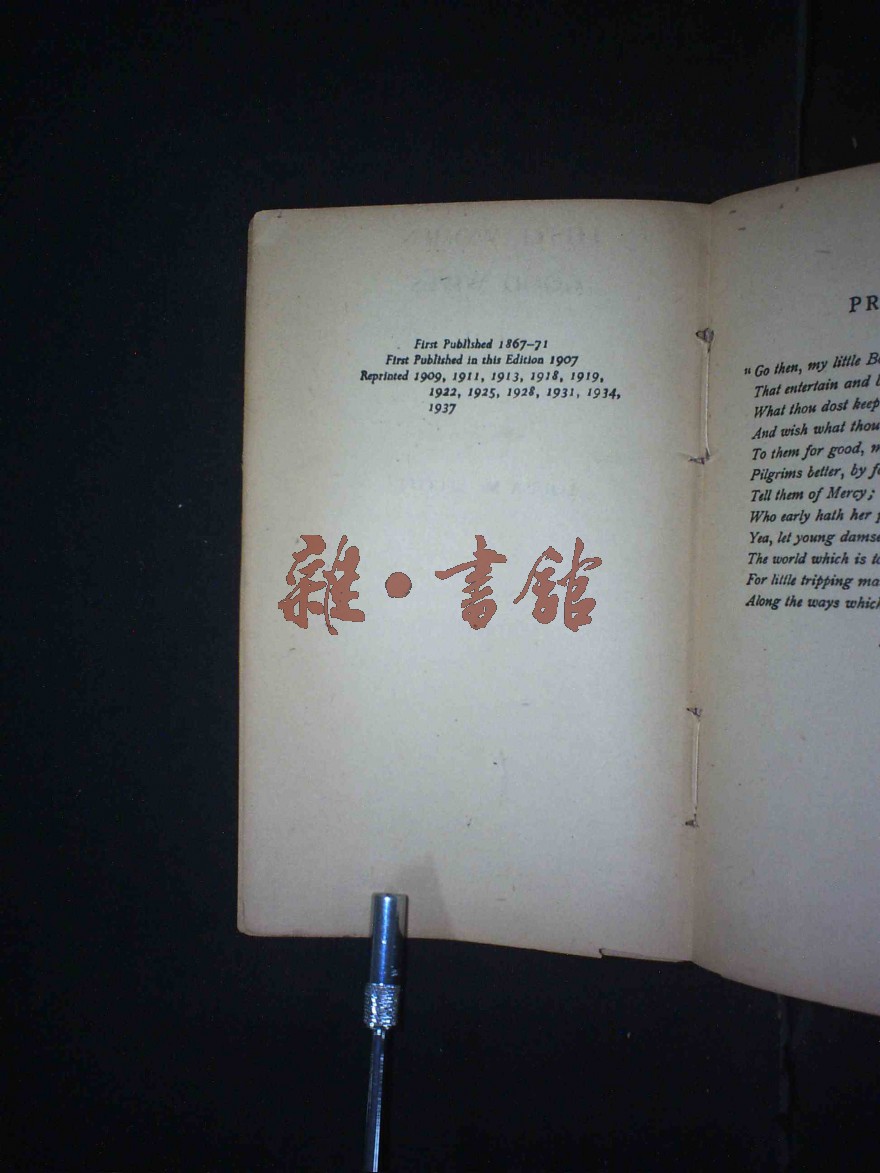 First Published 1867–71
First Published in this Edition 1907
Reprinted 1909, 1911, 1913, 1918, 1919,
1922, 1925, 1928, 1931, 1934,
1937
雜·書館
PR
"Go then, my little B
That entertain and
What thou dost keep
And wish what thou
To them for good,
Pilgrims better, by
Tell them of Mercy;
Who early hath her
Yea, let young damse
The world which is
For little tripping ma
Along the ways which